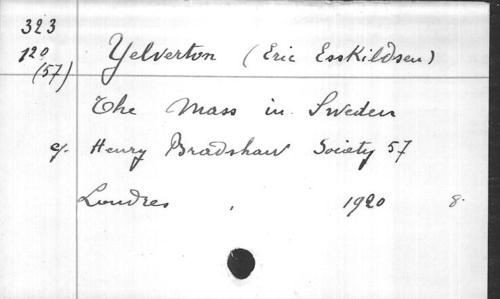 323
120
(57)
Yelverton (Eric Esskildsen)
The Mass in Sweden
cf. Henry Bradshaw Society 57
Londres, 1920 8.